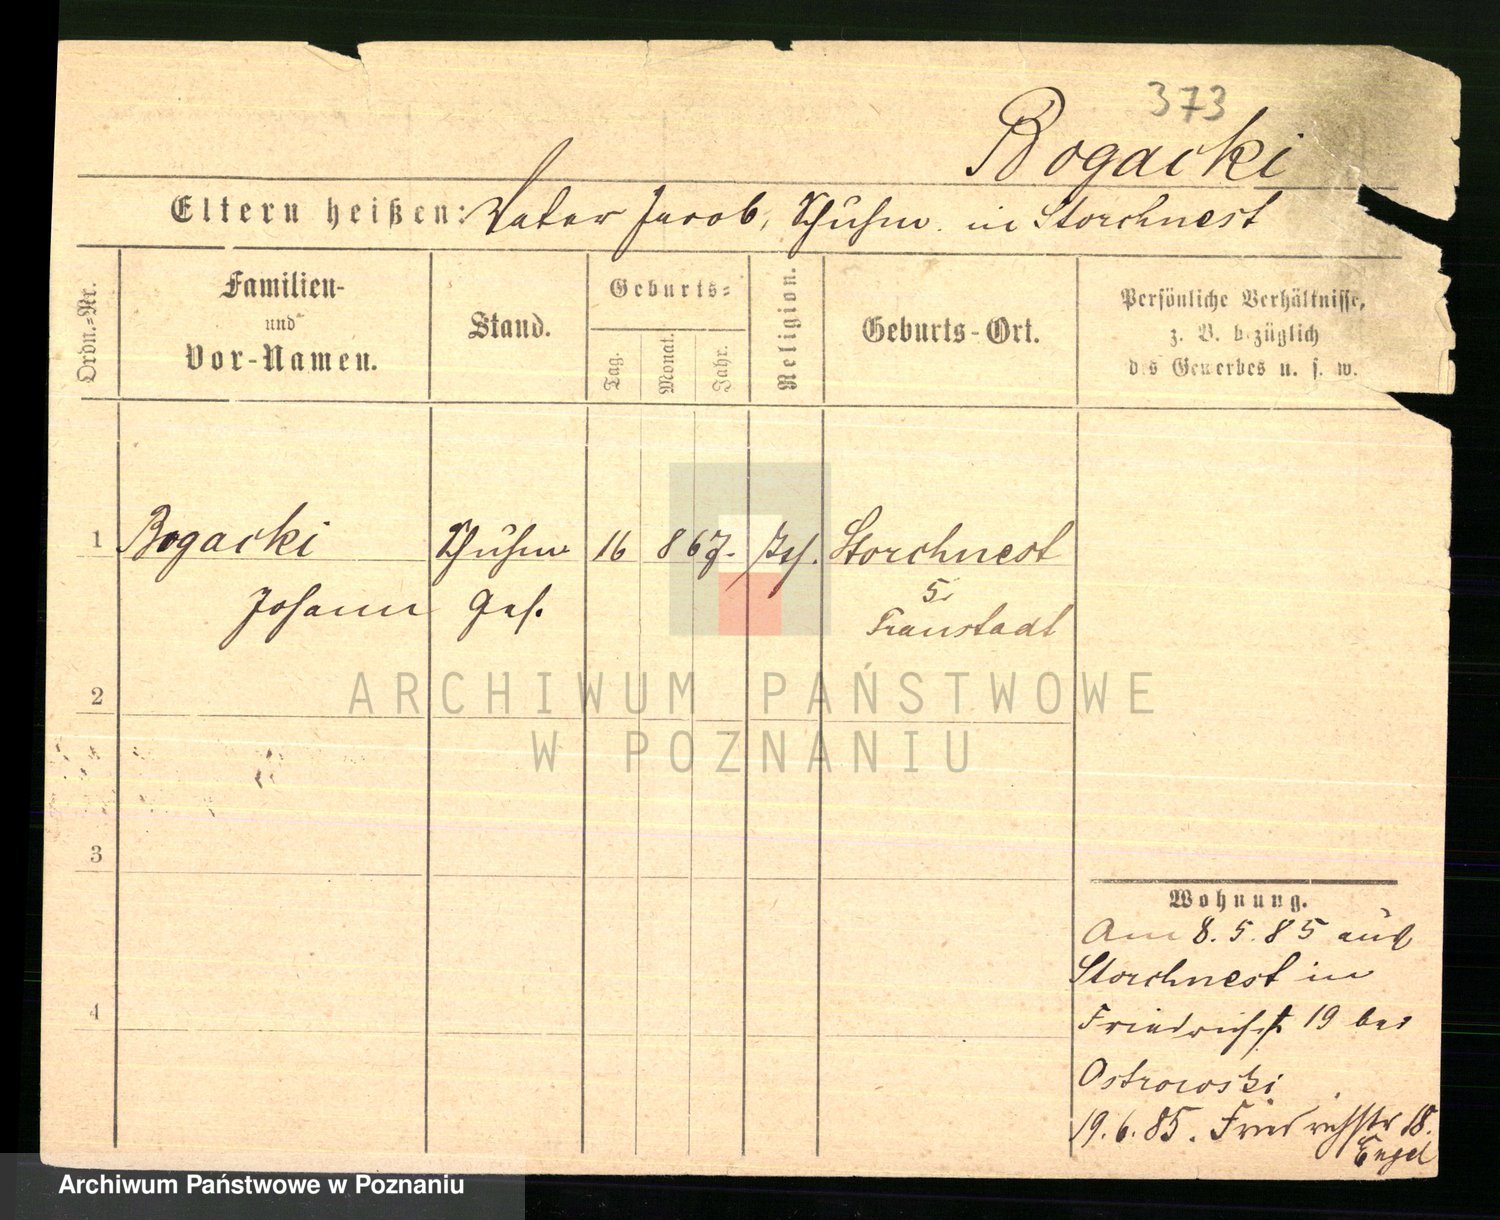 373
Bogacki
Eltern heißen: Vater Jacob, Schuhm. in Storchnest
Ordn.-Nr.
Familien-
und
Vor-Namen.
Stand.
Geburts-
Tag.
Monat.
Jahr.
Religion.
Geburts-Ort.
Persönliche Verhältnisse,
z. B. bezüglich
des Gewerbes u. s. w.
1 Bogacki Schuhm 16 8 67. Storchnest
Johann Ges. Fraustadt
2
3
4
Wohnung.
Am 8.5.85 aus
Storchnest in
Friedrichst 19 bei
Ostrowski
19.6.85. Friedrichstr 18.
Engel
ARCHIWUM PAŃSTWOWE
W POZNANIU
Archiwum Państwowe w Poznaniu